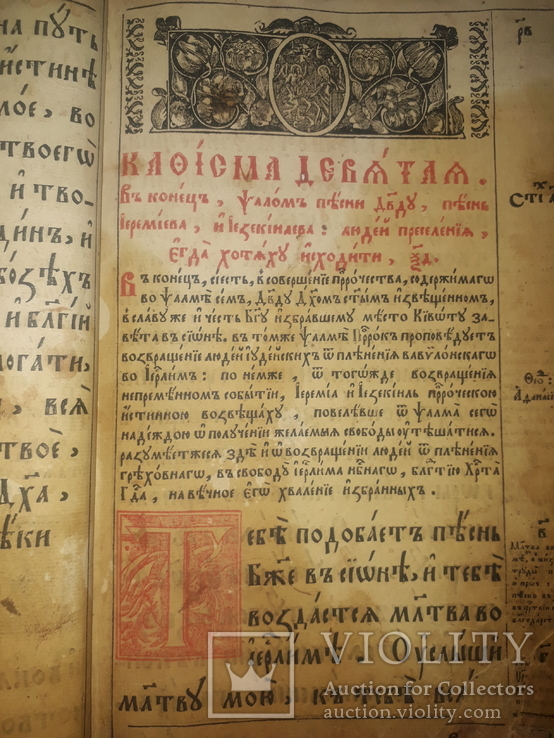 на путь
истинѣ
ло́е, во
твоегѡ̀
и҆ тво-
ди́нъ, и҆
во́зѣхъ
и҆ бл҃гі́й
мога́ти,
, всѧ̀
твоѐ,
дх҃а,
вѣ́ки
рв
КАѲІСМА ДЕВѦТАѦ.
Въ конецъ, ѱаломъ пѣсни дв҃ду, пѣснь
і҆еремі́ева, и҆ і҆езекі́илева: людей преселе́нїѧ,
є҆гда̀ хотѧ́ху и҆сходи́ти, ѯд҃а.
Въ конецъ, сіесть, въ совершеніе пр҇рочества, содержимагѡ
во ѱалмѣ семъ, дв҃ду дх҃омъ ст҃ымъ извѣщенномъ,
въ славу же и честь бг҃у избравшему мѣсто кивѡту за-
вѣта въ сіѡнѣ. въ томже ѱалмѣ пр҇рокъ проповѣдуетъ
возвращеніе людей іудейскихъ ѿ плѣненіѧ вавѵлонскагѡ
во іер҃лимъ: по немже, ѿ тогѡжде возвращеніѧ
непремѣнномъ событіи, іереміа и іезекіиль пр҇роческою
истинною возвѣщаху, повелѣвше ѿ ѱалма сегѡ
надеждою ѡ полученіи желаемыѧ свободы оутѣшатисѧ.
разумѣетжесѧ здѣ и ѡ возвращеніи людей ѿ плѣненіѧ
грѣховнагѡ, въ свободу іер҃лима нб҃нагѡ, блг҃тію хр҇та
гд҇а, на вѣчное егѡ хваленіе избранныхъ.
Тебѣ̀ подоба́етъ пѣ́снь
бж҃е въ сїѡ́нѣ, и҆ тебѣ̀
возда́стсѧ мл҃тва во
і҆ер҃ли́мѣ. Оу҆слы́ши
мл҃тву мою̀, къ тебѣ̀ всѧ́
VIOLITY
Auction for Collectors
auction.violity.com